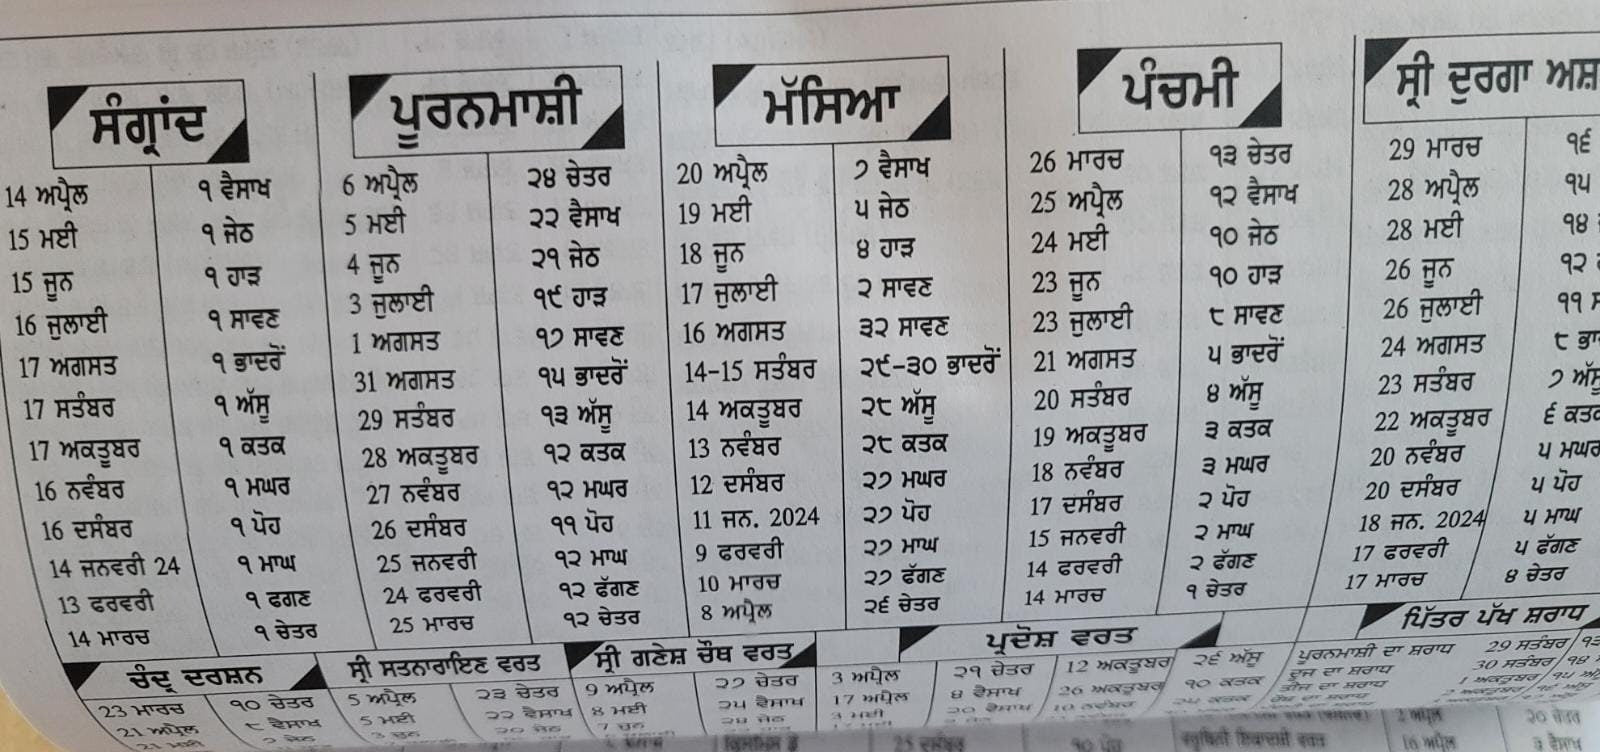 ਸੰਗ੍ਰਾਂਦ
14 ਅਪ੍ਰੈਲ ੧ ਵੈਸਾਖ
15 ਮਈ ੧ ਜੇਠ
15 ਜੂਨ ੧ ਹਾੜ
16 ਜੁਲਾਈ ੧ ਸਾਵਣ
17 ਅਗਸਤ ੧ ਭਾਦਰੋਂ
17 ਸਤੰਬਰ ੧ ਅੱਸੂ
17 ਅਕਤੂਬਰ ੧ ਕਤਕ
16 ਨਵੰਬਰ ੧ ਮਘਰ
16 ਦਸੰਬਰ ੧ ਪੋਹ
14 ਜਨਵਰੀ 24 ੧ ਮਾਘ
13 ਫਰਵਰੀ ੧ ਫਗਣ
14 ਮਾਰਚ ੧ ਚੇਤਰ
ਪੂਰਨਮਾਸ਼ੀ
6 ਅਪ੍ਰੈਲ ੨੪ ਚੇਤਰ
5 ਮਈ ੨੨ ਵੈਸਾਖ
4 ਜੂਨ ੨੧ ਜੇਠ
3 ਜੁਲਾਈ ੧੯ ਹਾੜ
1 ਅਗਸਤ ੧੭ ਸਾਵਣ
31 ਅਗਸਤ ੧੫ ਭਾਦਰੋਂ
29 ਸਤੰਬਰ ੧੩ ਅੱਸੂ
28 ਅਕਤੂਬਰ ੧੨ ਕਤਕ
27 ਨਵੰਬਰ ੧੨ ਮਘਰ
26 ਦਸੰਬਰ ੧੧ ਪੋਹ
25 ਜਨਵਰੀ ੧੨ ਮਾਘ
24 ਫਰਵਰੀ ੧੨ ਫੱਗਣ
25 ਮਾਰਚ ੧੨ ਚੇਤਰ
ਮੱਸਿਆ
20 ਅਪ੍ਰੈਲ ੭ ਵੈਸਾਖ
19 ਮਈ ੫ ਜੇਠ
18 ਜੂਨ ੪ ਹਾੜ
17 ਜੁਲਾਈ ੨ ਸਾਵਣ
16 ਅਗਸਤ ੩੨ ਸਾਵਣ
14-15 ਸਤੰਬਰ ੨੯-੩੦ ਭਾਦਰੋਂ
14 ਅਕਤੂਬਰ ੨੮ ਅੱਸੂ
13 ਨਵੰਬਰ ੨੮ ਕਤਕ
12 ਦਸੰਬਰ ੨੭ ਮਘਰ
11 ਜਨ. 2024 ੨੭ ਪੋਹ
9 ਫਰਵਰੀ ੨੭ ਮਾਘ
10 ਮਾਰਚ ੨੭ ਫੱਗਣ
8 ਅਪ੍ਰੈਲ ੨੬ ਚੇਤਰ
ਪੰਚਮੀ
26 ਮਾਰਚ ੧੩ ਚੇਤਰ
25 ਅਪ੍ਰੈਲ ੧੨ ਵੈਸਾਖ
24 ਮਈ ੧੦ ਜੇਠ
23 ਜੂਨ ੧੦ ਹਾੜ
23 ਜੁਲਾਈ ੮ ਸਾਵਣ
21 ਅਗਸਤ ੫ ਭਾਦਰੋਂ
20 ਸਤੰਬਰ ੪ ਅੱਸੂ
19 ਅਕਤੂਬਰ ੩ ਕਤਕ
18 ਨਵੰਬਰ ੩ ਮਘਰ
17 ਦਸੰਬਰ ੨ ਪੋਹ
15 ਜਨਵਰੀ ੨ ਮਾਘ
14 ਫਰਵਰੀ ੨ ਫੱਗਣ
14 ਮਾਰਚ ੧ ਚੇਤਰ
ਸ੍ਰੀ ਦੁਰਗਾ ਅਸ਼
29 ਮਾਰਚ ੧੬
28 ਅਪ੍ਰੈਲ ੧੫
28 ਮਈ ੧੪
26 ਜੂਨ ੧੨
26 ਜੁਲਾਈ ੧੧
24 ਅਗਸਤ ੮
23 ਸਤੰਬਰ ੭ ਅੱਸੂ
22 ਅਕਤੂਬਰ ੬ ਕਤਕ
20 ਨਵੰਬਰ ੫ ਮਘਰ
20 ਦਸੰਬਰ ੫ ਪੋਹ
18 ਜਨ. 2024 ੫ ਮਾਘ
17 ਫਰਵਰੀ ੫ ਫੱਗਣ
17 ਮਾਰਚ ੪ ਚੇਤਰ
ਚੰਦ੍ਰ ਦਰਸ਼ਨ
23 ਮਾਰਚ ੧੦ ਚੇਤਰ
21 ਅਪ੍ਰੈਲ ੮ ਵੈਸਾਖ
ਸ੍ਰੀ ਸਤਨਾਰਾਇਣ ਵਰਤ
5 ਅਪ੍ਰੈਲ ੨੩ ਚੇਤਰ
5 ਮਈ ੨੨ ਵੈਸਾਖ
3 ਜੂਨ ੨੦ ਜੇਠ
ਸ੍ਰੀ ਗਣੇਸ਼ ਚੌਥ ਵਰਤ
9 ਅਪ੍ਰੈਲ ੨੭ ਚੇਤਰ
8 ਮਈ ੨੫ ਵੈਸਾਖ
7 ਜੂਨ ੨੪ ਜੇਠ
ਪ੍ਰਦੋਸ਼ ਵਰਤ
3 ਅਪ੍ਰੈਲ ੨੧ ਚੇਤਰ 12 ਅਕਤੂਬਰ ੨੬ ਅੱਸੂ
17 ਅਪ੍ਰੈਲ ੪ ਵੈਸਾਖ 26 ਅਕਤੂਬਰ ੧੦ ਕਤਕ
3 ਮਈ ੨੦ ਵੈਸਾਖ
ਪਿੱਤਰ ਪੱਖ ਸ਼ਰਾਧ
ਪੂਰਨਮਾਸ਼ੀ ਦਾ ਸ਼ਰਾਧ 29 ਸਤੰਬਰ ੧੩
ਦੂਜ ਦਾ ਸ਼ਰਾਧ 30 ਸਤੰਬਰ ੧੪
ਤੀਜ ਦਾ ਸ਼ਰਾਧ 1 ਅਕਤੂਬਰ ੧੫